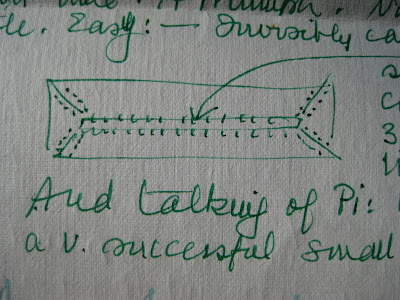 Easy: — Invisibly ca
s
c
3
li
And talking of Pi:
a v. successful small